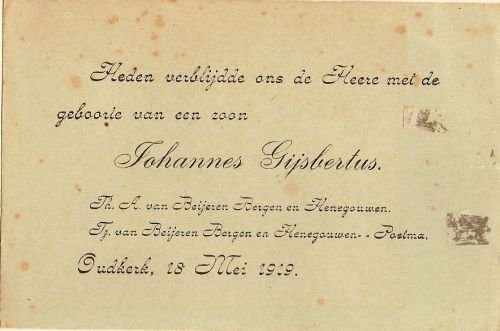 Heden verblijdde ons de Heere met de
geboorte van een zoon
Johannes Gijsbertus.
Th. A. van Beijeren Bergen en Henegouwen.
Tj. van Beijeren Bergen en Henegouwen- - Postma.
Oudkerk, 18 Mei 1919.